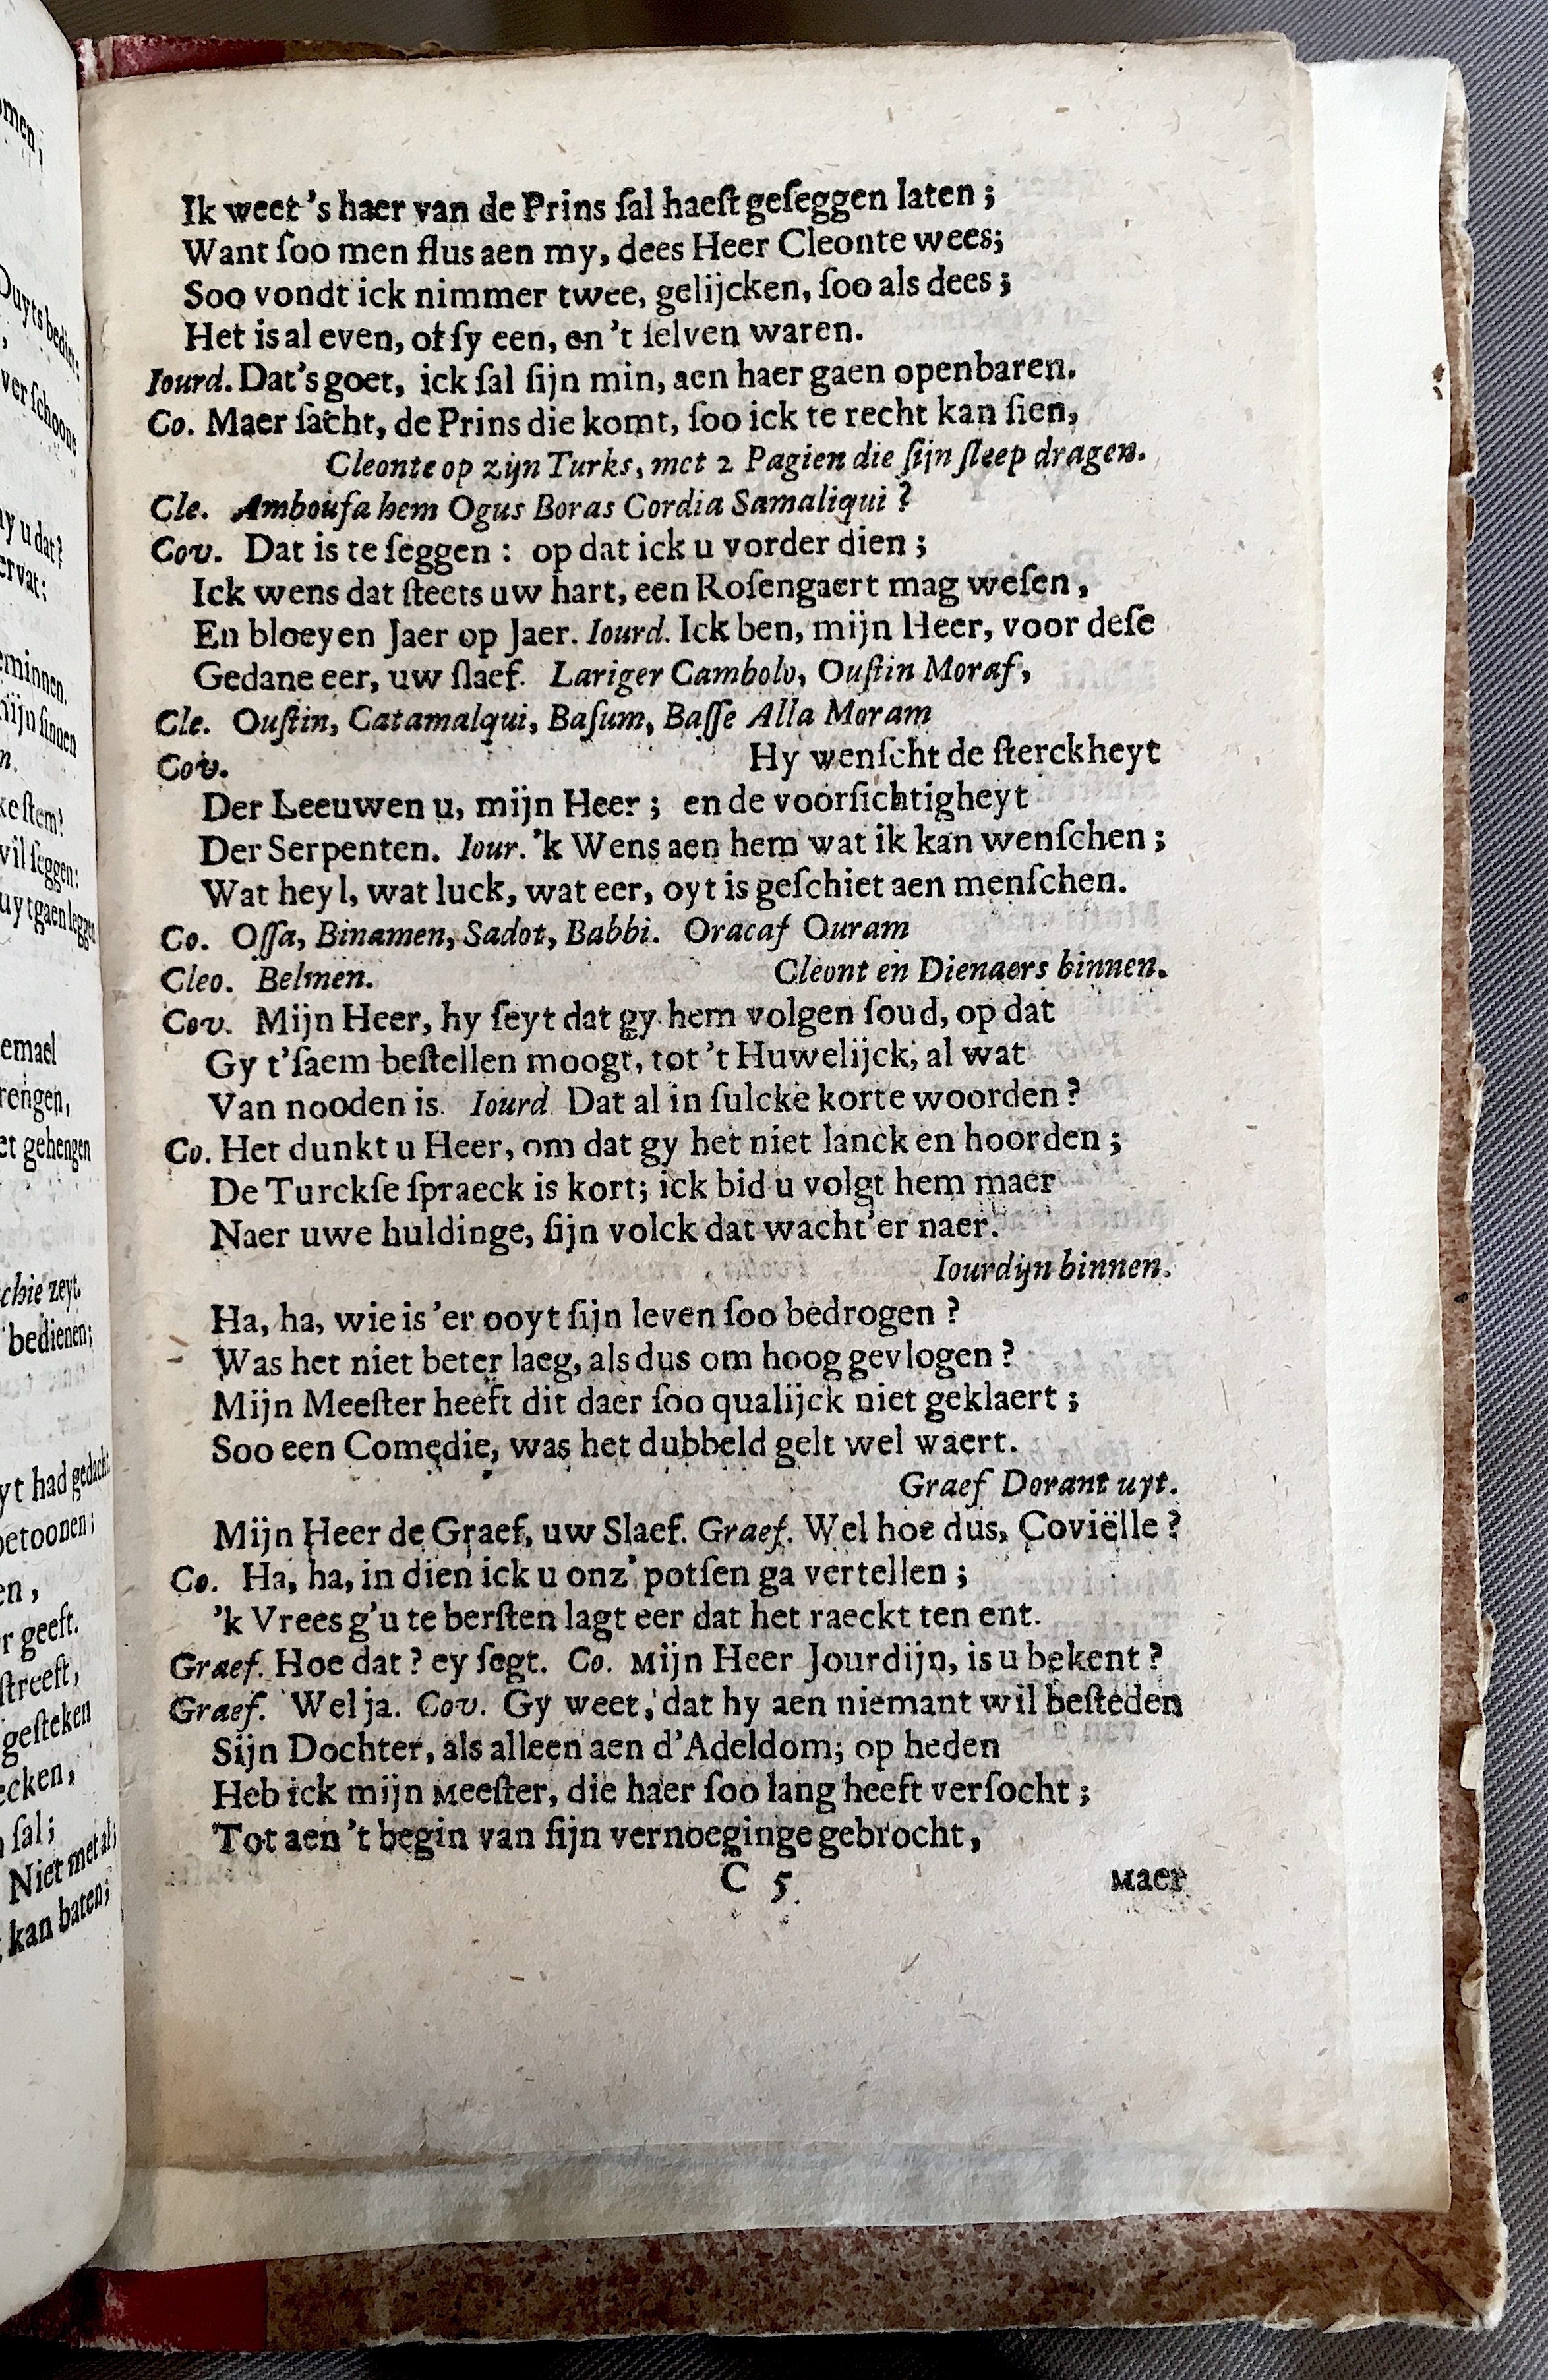 Ik weet 's haer van de Prins ſal haeſt geſeggen laten ;
Want ſoo men flus aen my, dees Heer Cleonte wees;
Soo vondt ick nimmer twee, gelijcken, ſoo als dees ;
Het is al even, of ſy een, en 't ſelven waren.
Iourd. Dat's goet, ick ſal ſijn min, aen haer gaen openbaren.
Co. Maer ſacht, de Prins die komt, ſoo ick te recht kan ſien,
Cleonte op zijn Turks, met 2 Pagien die ſijn ſleep dragen.
Cle. Ambouſa hem Ogus Boras Cordia Samaliqui ?
Cov. Dat is te ſeggen : op dat ick u vorder dien ;
Ick wens dat ſteets uw hart, een Roſengaert mag weſen ,
En bloeyen Jaer op Jaer. Iourd. Ick ben, mijn Heer, voor deſe
Gedane eer, uw ſlaef. Lariger Cambolo, Ouſtin Moraf,
Cle. Ouſtin, Catamalqui, Baſum, Baſſe Alla Moram
Cov. Hy wenſcht de ſterckheyt
Der Leeuwen u, mijn Heer ; en de voorſichtigheyt
Der Serpenten. Iour. 'k Wens aen hem wat ik kan wenſchen ;
Wat heyl, wat luck, wat eer, oyt is geſchiet aen menſchen.
Co. Oſſa, Binamen, Sadot, Babbi. Oracaf Ouram
Cleo. Belmen. Cleont en Dienaers binnen.
Cov. Mijn Heer, hy ſeyt dat gy hem volgen ſoud, op dat
Gy t'ſaem beſtellen moogt, tot 't Huwelijck, al wat
Van nooden is. Iourd. Dat al in ſulcke korte woorden ?
Co. Het dunkt u Heer, om dat gy het niet lanck en hoorden ;
De Turckſe ſpraeck is kort; ick bid u volgt hem maer
Naer uwe huldinge, ſijn volck dat wacht 'er naer.
Iourdijn binnen.
Ha, ha, wie is 'er ooyt ſijn leven ſoo bedrogen ?
Was het niet beter laeg, als dus om hoog gevlogen ?
Mijn Meeſter heeft dit daer ſoo qualijck niet geklaert ;
Soo een Comedie, was het dubbeld gelt wel waert.
Graef Dorant uyt.
Mijn Heer de Graef, uw Slaef. Graef. Wel hoe dus, Coviëlle ?
Co. Ha, ha, in dien ick u onz' potſen ga vertellen ;
'k Vrees g'u te berſten lagt eer dat het raeckt ten ent.
Graef. Hoe dat ? ey ſegt. Co. Mijn Heer Jourdijn, is u bekent ?
Graef. Wel ja. Cov. Gy weet, dat hy aen niemant wil beſteden
Sijn Dochter, als alleen aen d'Adeldom; op heden
Heb ick mijn Meeſter, die haer ſoo lang heeft verſocht ;
Tot aen 't begin van ſijn vernoeginge gebrocht,
C 5 Maer